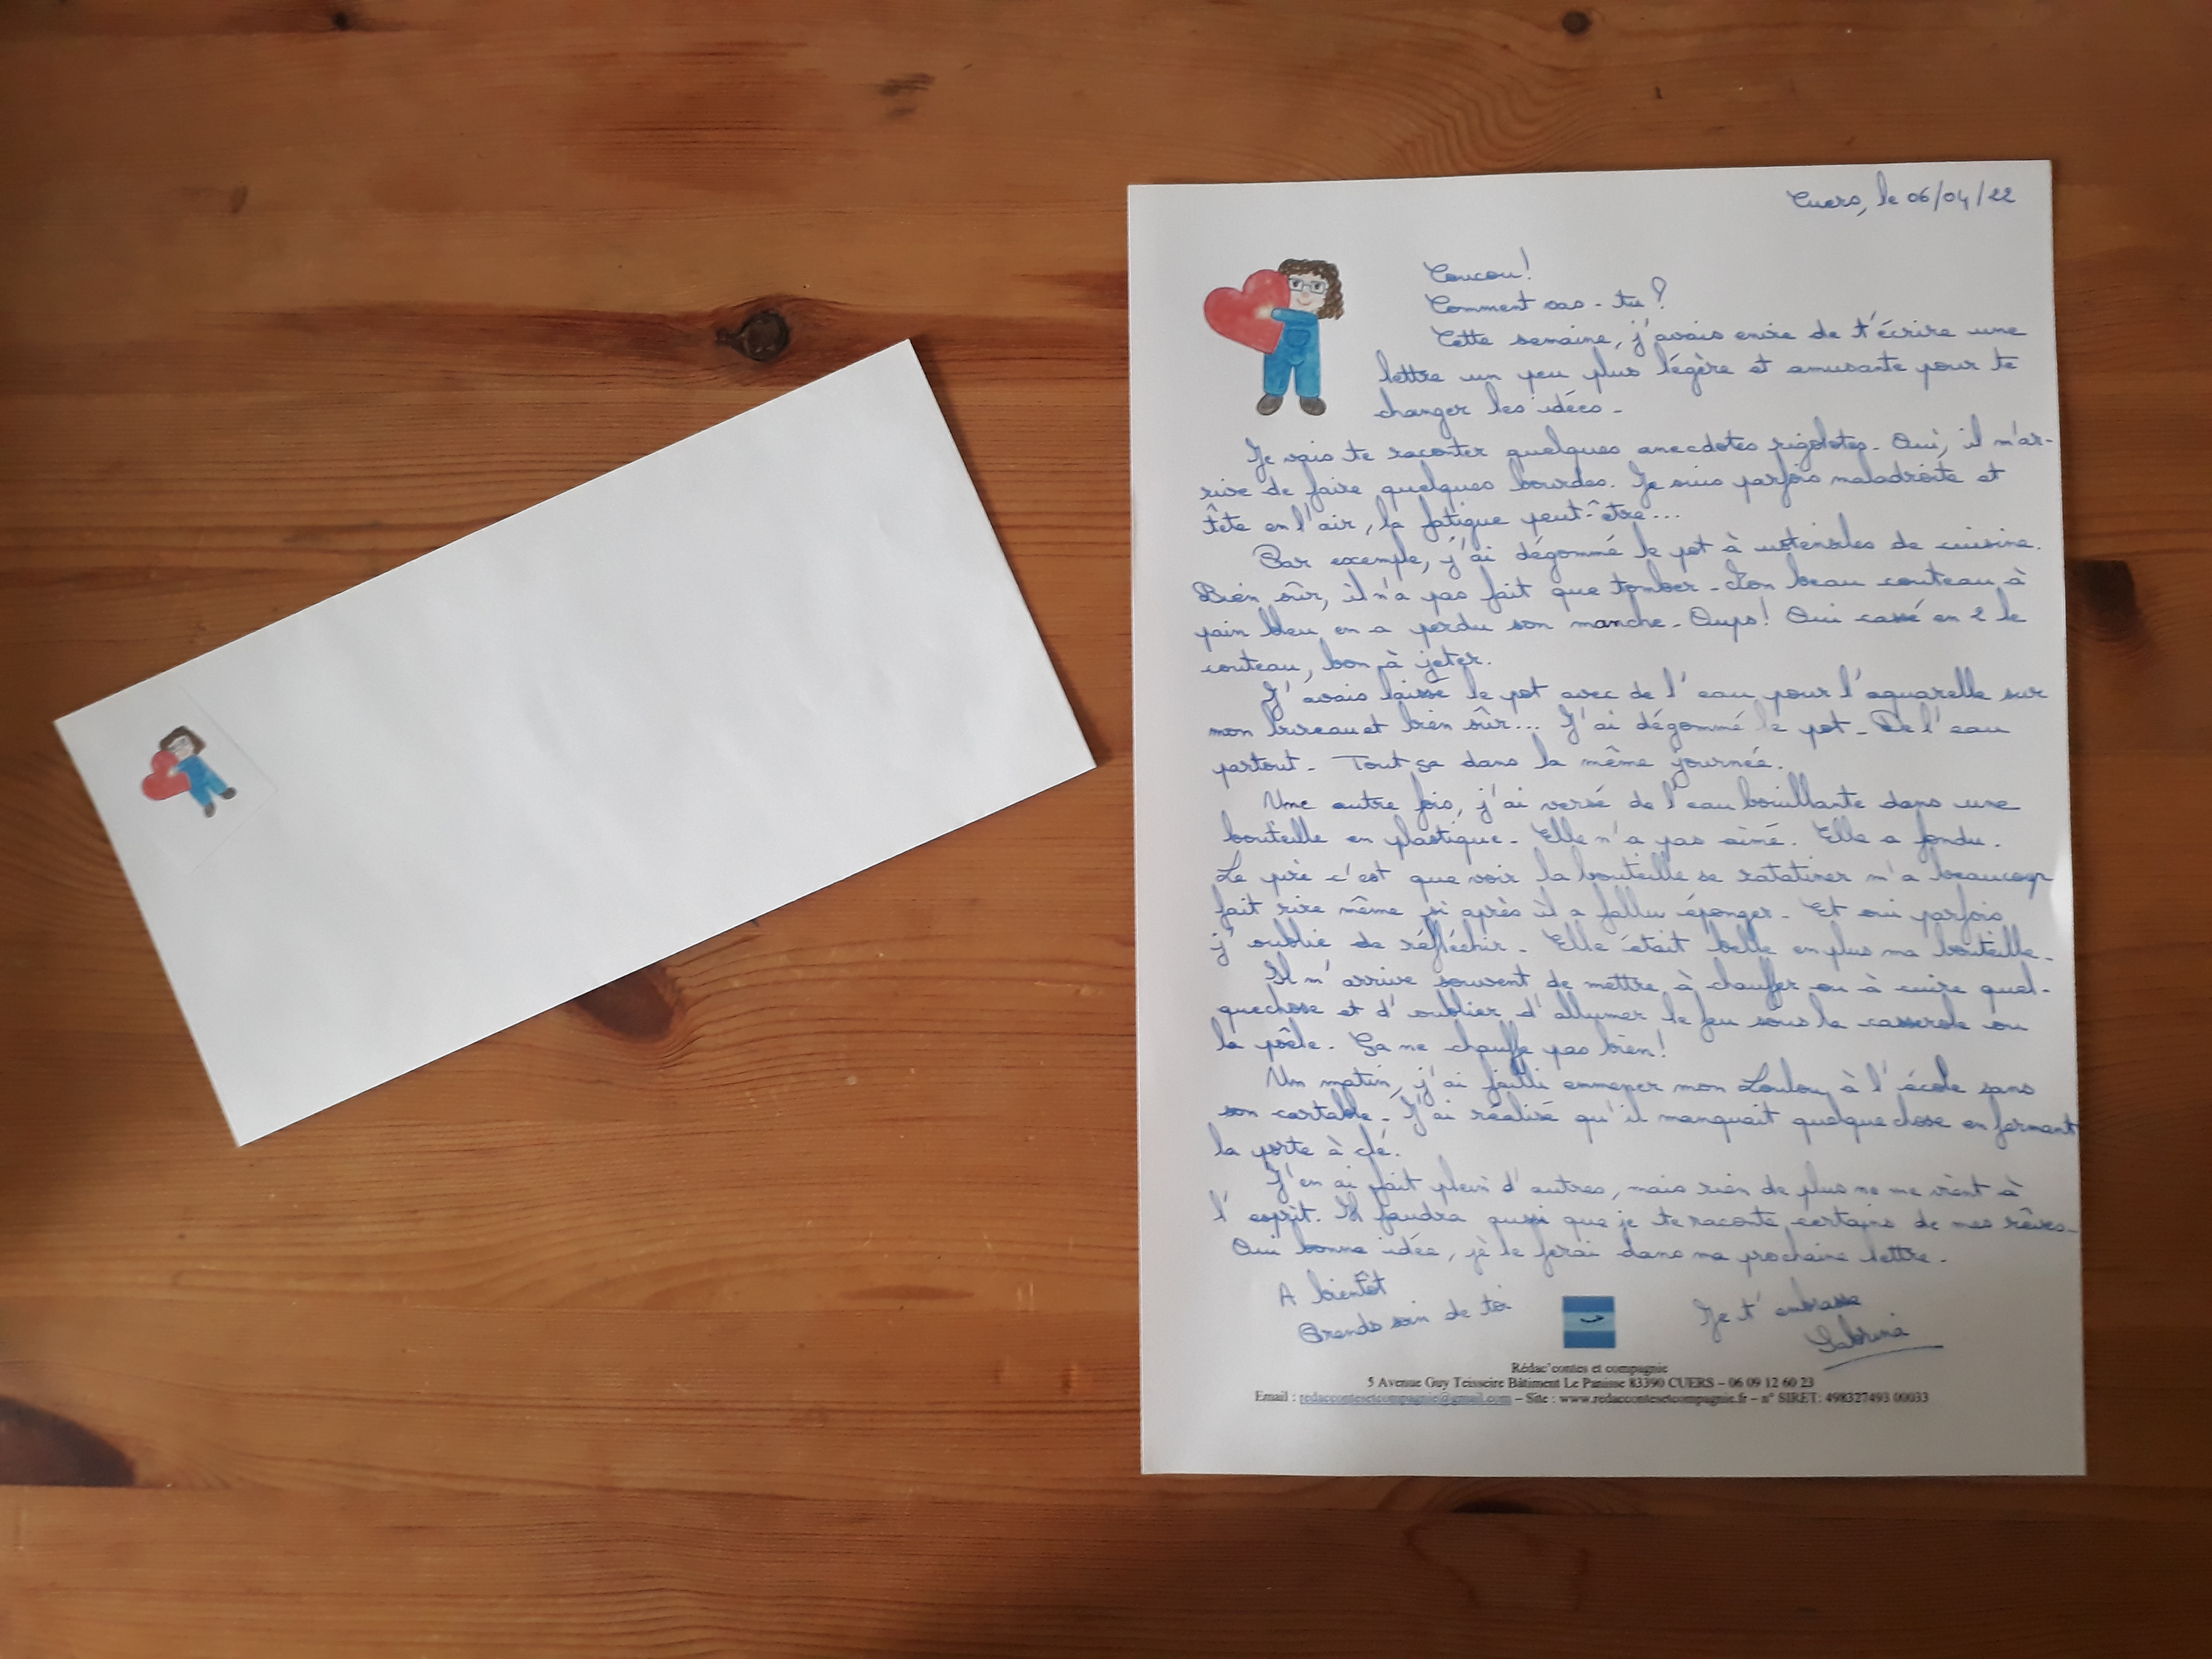 Cuers, le 06/04/22
Coucou!
Comment vas-tu?
Cette semaine, j'avais envie de t'écrire une
lettre un peu plus légère et amusante pour te
changer les idées.
Je vais te raconter quelques anecdotes rigolotes. Oui, il m'ar-
rive de faire quelques bourdes. Je suis parfois maladroite et
tête en l'air, la fatigue peut-être...
Par exemple, j'ai dégommé le pot à ustensiles de cuisine.
Bien sûr, il n'a pas fait que tomber. Mon beau couteau à
pain bleu en a perdu son manche. Oups! Oui cassé en 2 le
couteau, bon à jeter.
J'avais laissé le pot avec de l'eau pour l'aquarelle sur
mon bureau et bien sûr... J'ai dégommé le pot. De l'eau
partout. Tout ça dans la même journée.
Une autre fois, j'ai versé de l'eau bouillante dans une
bouteille en plastique. Elle n'a pas aimé. Elle a fondu.
Le pire c'est que voir la bouteille se ratatiner m'a beaucoup
fait rire même si après il a fallu éponger. Et oui parfois
j'oublie de réfléchir. Elle était belle en plus ma bouteille.
Il m'arrive souvent de mettre à chauffer ou à cuire quel-
quechose et d'oublier d'allumer le feu sous la casserole ou
la poêle. Ça ne chauffe pas bien!
Un matin, j'ai failli emmener mon Loulou à l'école sans
son cartable. J'ai réalisé qu'il manquait quelque chose en fermant
la porte à clé.
J'en ai fait plein d'autres, mais rien de plus ne me vient à
l'esprit. Il faudra aussi que je te raconte certains de mes rêves.
Oui bonne idée, je le ferai dans ma prochaine lettre.
A bientôt
Prends soin de toi
Je t'embrasse
Sabrina
Rédac'contes et compagnie
5 Avenue Guy Teisseire Bâtiment Le Panisse 83390 CUERS – 06 09 12 60 23
Email : redaccontesetcompagnie@gmail.com – Site : www.redaccontesetcompagnie.fr – n° SIRET: 498327493 00033